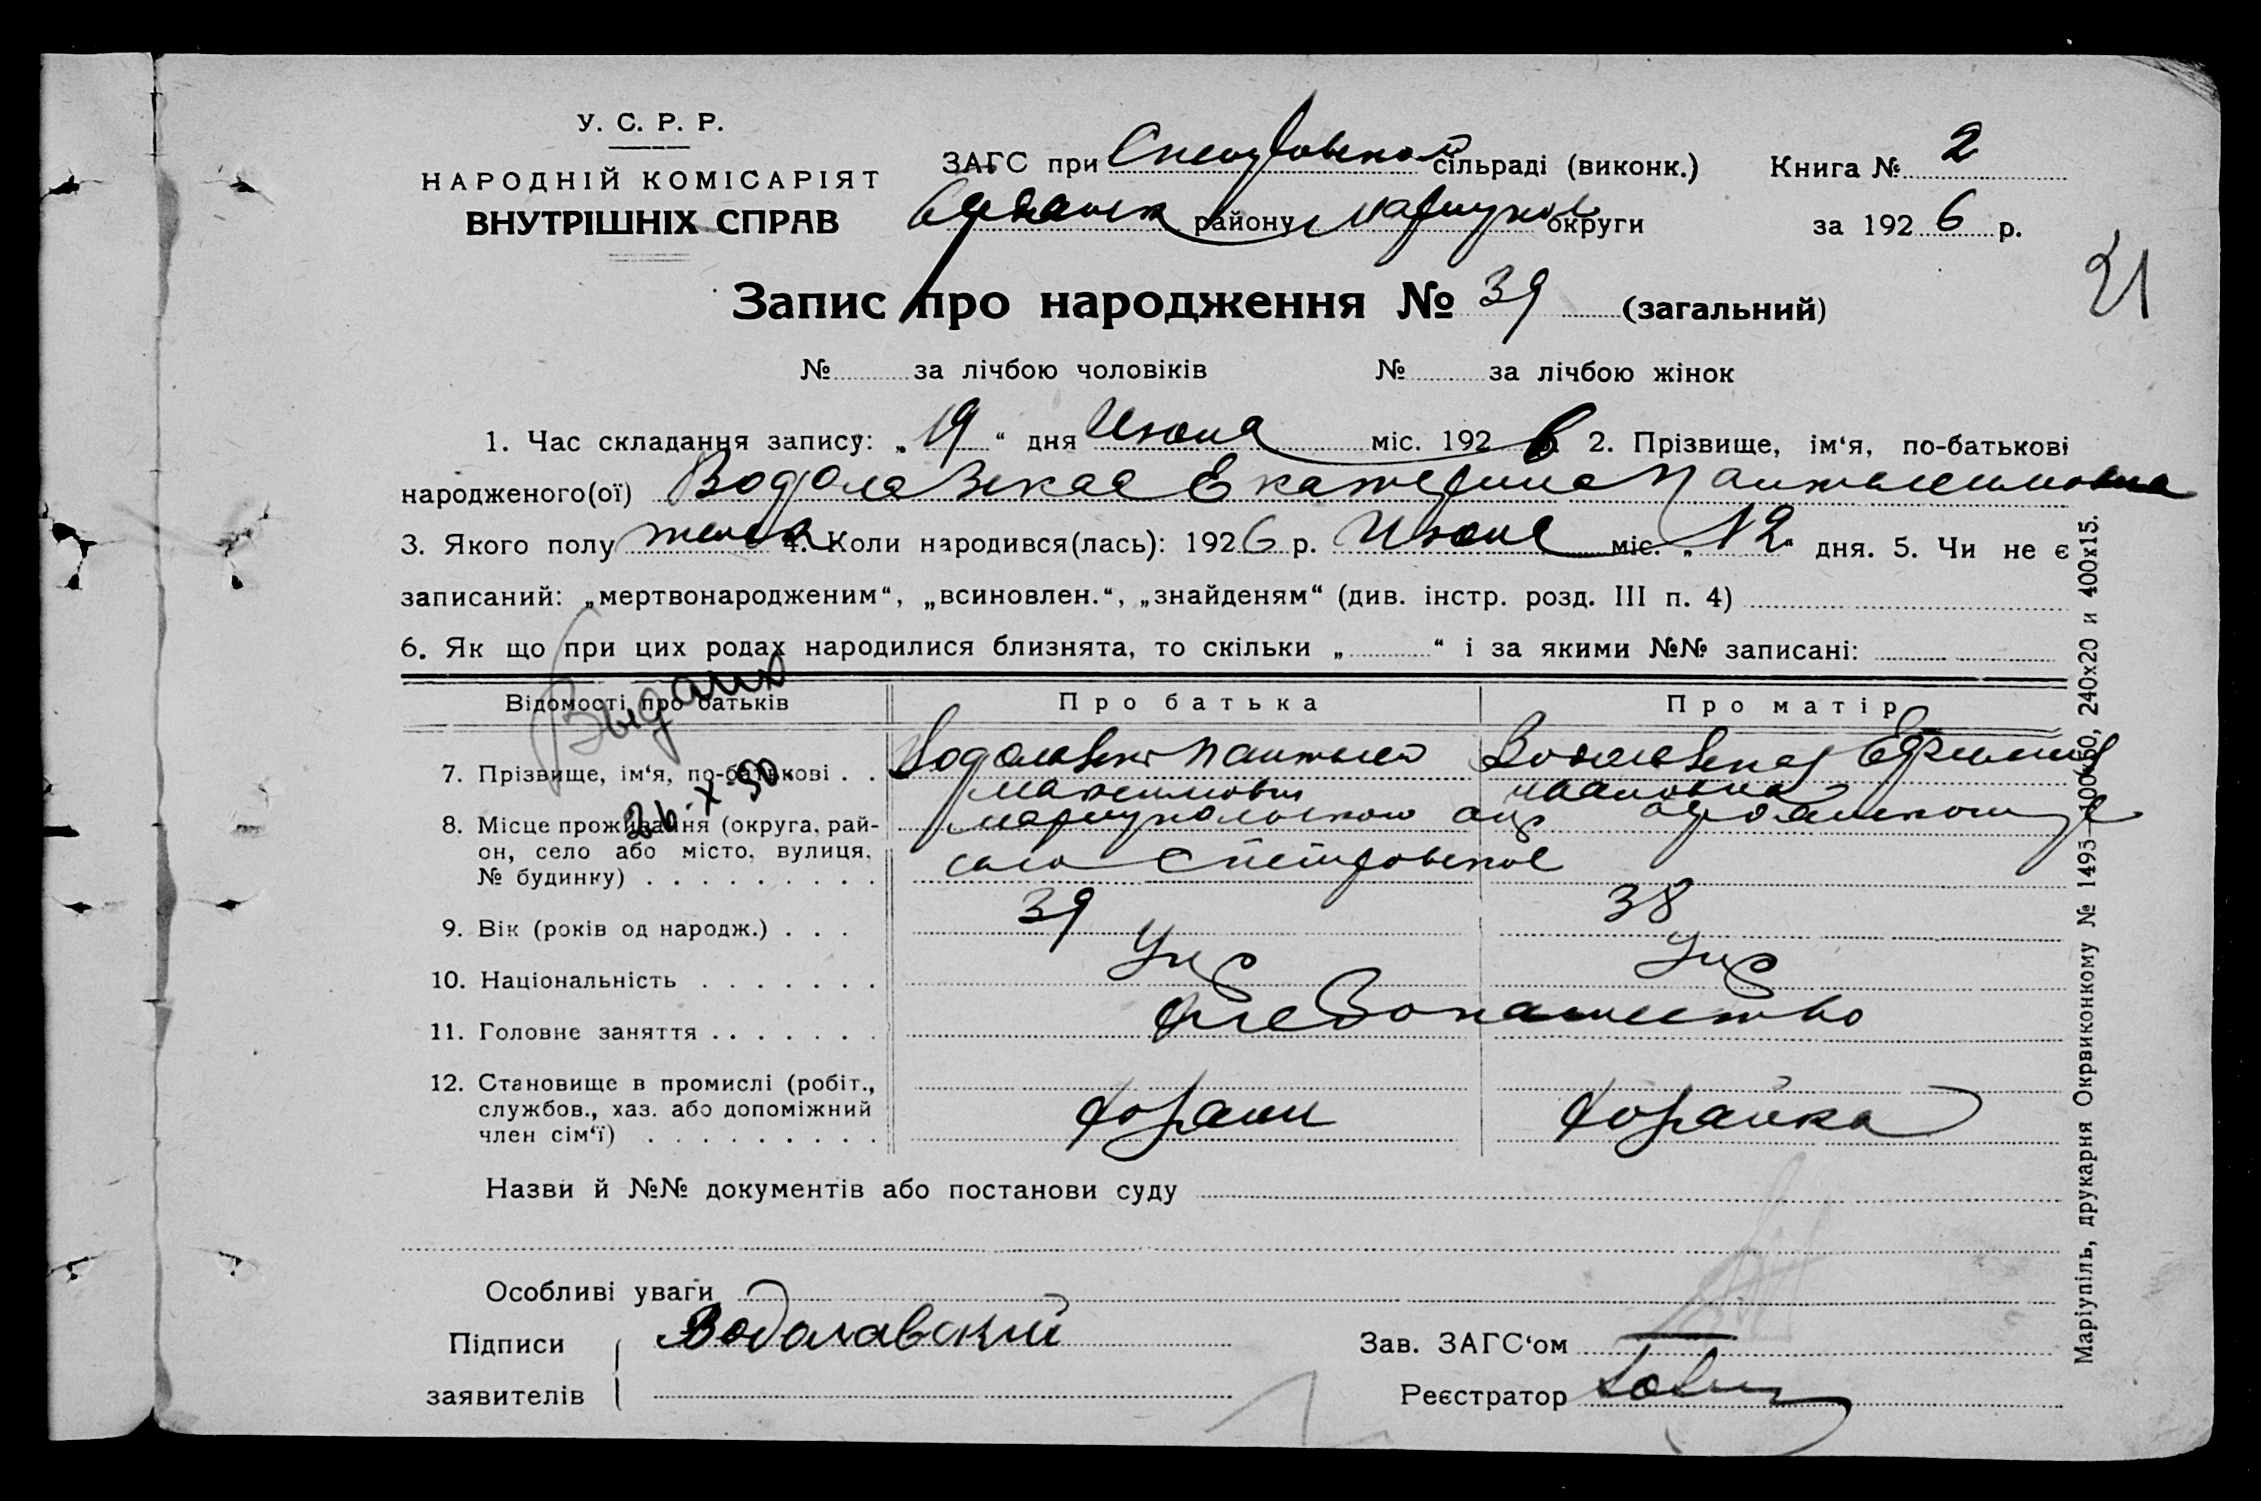 У. С. Р. Р.
НАРОДНІЙ КОМІСАРІЯТ
ВНУТРІШНІХ СПРАВ
ЗАГС при сільраді (виконк.) Книга № 2
району Мариупол округи за 1926 р.
21
Запис про народження № 39 (загальний)
№ за лічбою чоловіків № за лічбою жінок
1. Час складання запису: „19“ дня Июня міс. 1926 2. Прізвище, ім‘я, по-батькові
народженого(ої) Водолазская Екатерина Пантелеимовна
3. Якого полу женск 4. Коли народився(лась): 1926 р. Июня міс. „12“ дня. 5. Чи не є
записаний: „мертвонародженим“, „всиновлен.“, „знайденям“ (див. інстр. розд. III п. 4)
6. Як що при цих родах народилися близнята, то скільки „ “ і за якими №№ записані:
Выдано
26.X.50.
Відомості про батьків Про батька Про матір
7. Прізвище, ім‘я, по-батькові . . Пантелей Ефимия
Максимович Ивановна
8. Місце проживання (округа, рай-
он, село або місто, вулиця,
№ будинку) . . . . . . . . . село
9. Вік (років од народж.) . . . 39 38
10. Національність . . . . . . . Укр Укр
11. Головне заняття . . . . . . . хлебопашество
12. Становище в промислі (робіт.,
службов., хаз. або допоміжний
член сім‘ї) . . . . . . . . . хозяин хозяйка
Назви й №№ документів або постанови суду
Особливі уваги
Підписи Водолавский Зав. ЗАГС‘ом
заявителів Реєстратор
Маріупіль, друкарня Окрвиконкому № 1495—100х50, 240х20 и 400х15.